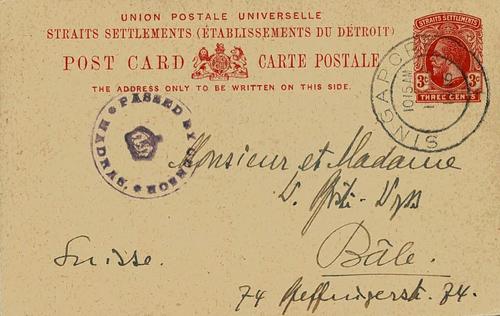 UNION POSTALE UNIVERSELLE
STRAITS SETTLEMENTS (ÉTABLISSEMENTS DU DÉTROIT)
POST CARD CARTE POSTALE
THE ADDRESS ONLY TO BE WRITTEN ON THIS SIDE.
STRAITS SETTLEMENTS
3c 3c
THREE CENTS
SINGAPORE
10 15 AM
PASSED BY CENSOR
MADRAS
Monsieur et Madame
Bâle.
Suisse.
74 Pfeffingerstr. 74.